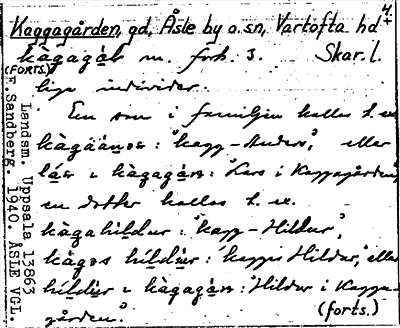 4.
Kaggagården, gd, Åsle by o. sn, Vartofta hd
kàgagàḷ m. forts. 3. Skar. l.
(FORTS.)
lige individer.
En son i familjen kallas t. ex.
kàgäános: "kagg-Anders", eller
lás i kàgagàṇ: "Lars i Kaggagården",
en dotter kallas t. ex.
kàgahíldur: "kagg-Hildur",
kàgas híldur: "kaggas Hildur", eller
híldur i kàgagàṇ: "Hildur i Kagga-
gården".
(forts.)
Landsm. Uppsala 13863
F. Sandberg. 1940. ÅSLE VGL.